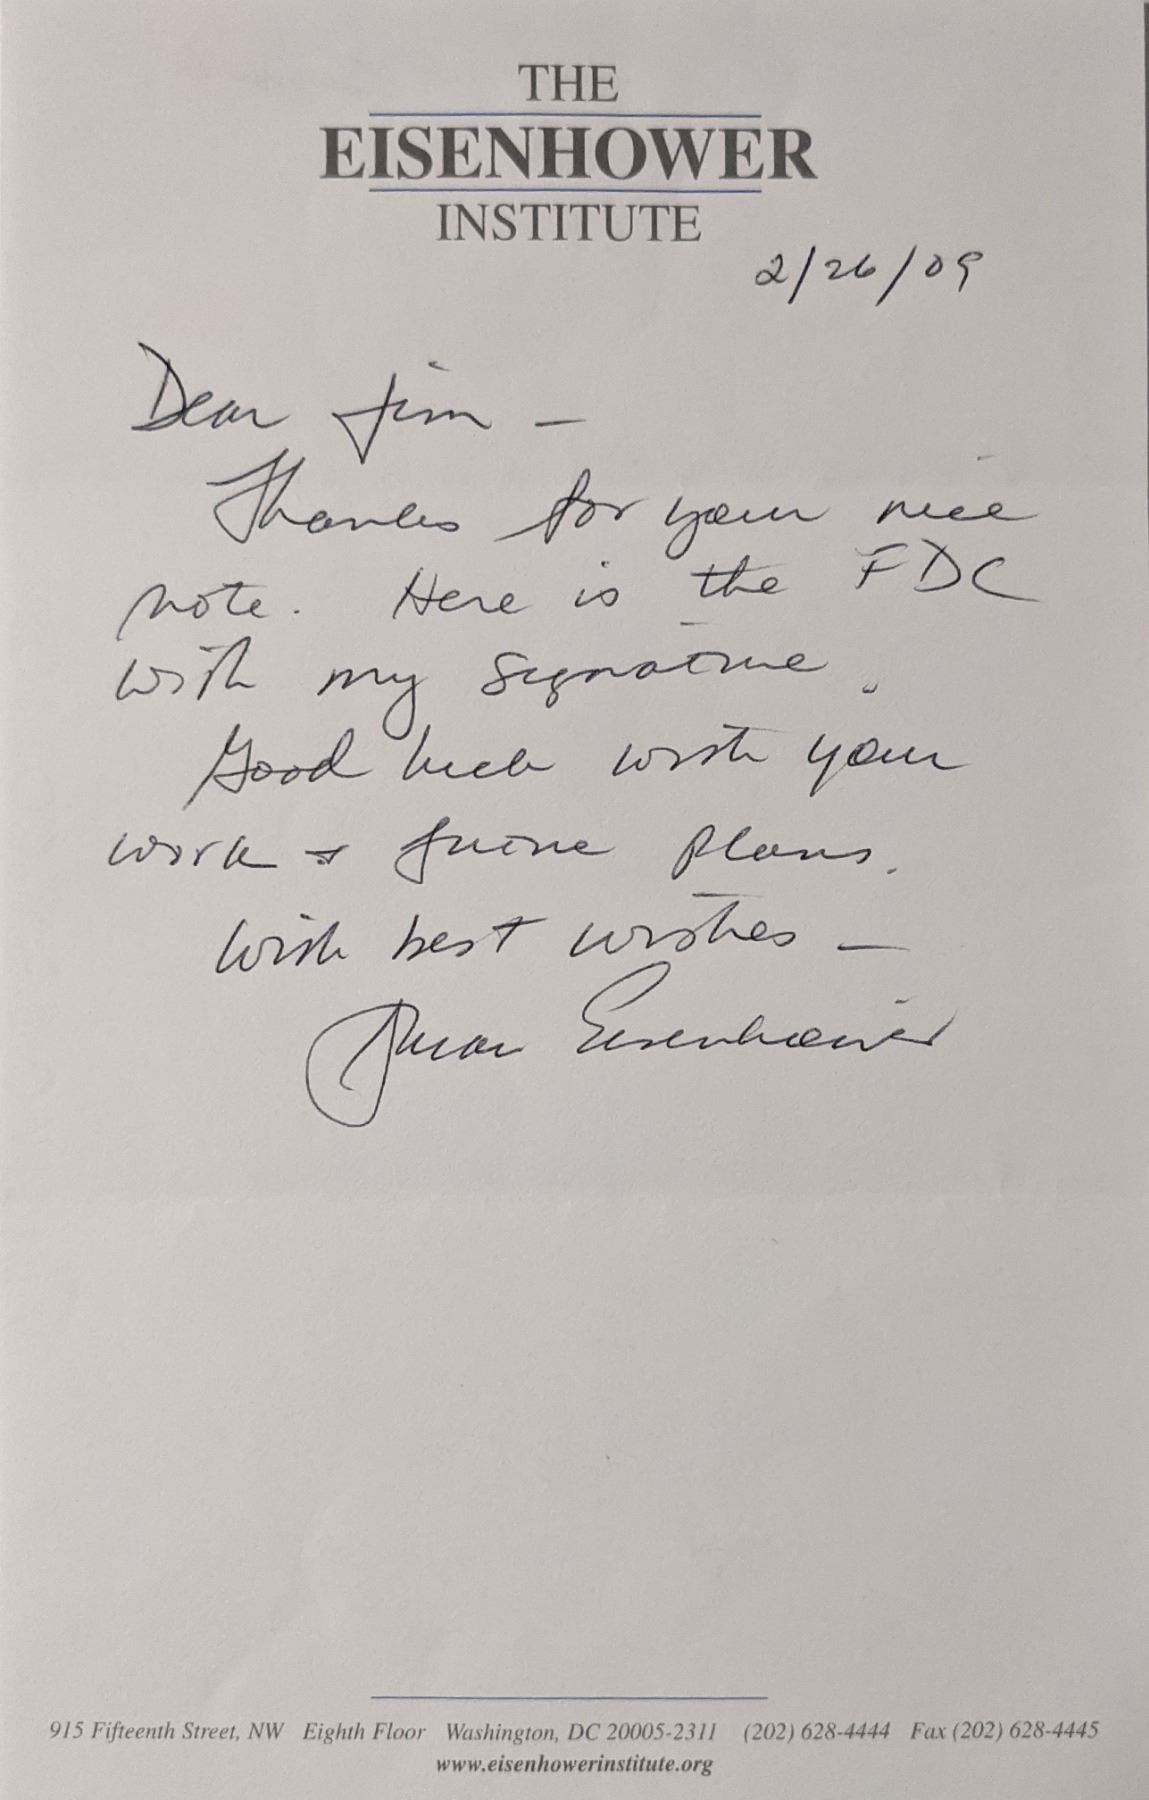 THE
EISENHOWER
INSTITUTE
2/26/09
Dear Jim –
Thanks for your nice
note. Here is the FDC
with my signature.
Good luck with your
work & future plans.
With best wishes –
Susan Eisenhower
915 Fifteenth Street, NW Eighth Floor Washington, DC 20005-2311 (202) 628-4444 Fax (202) 628-4445
www.eisenhowerinstitute.org